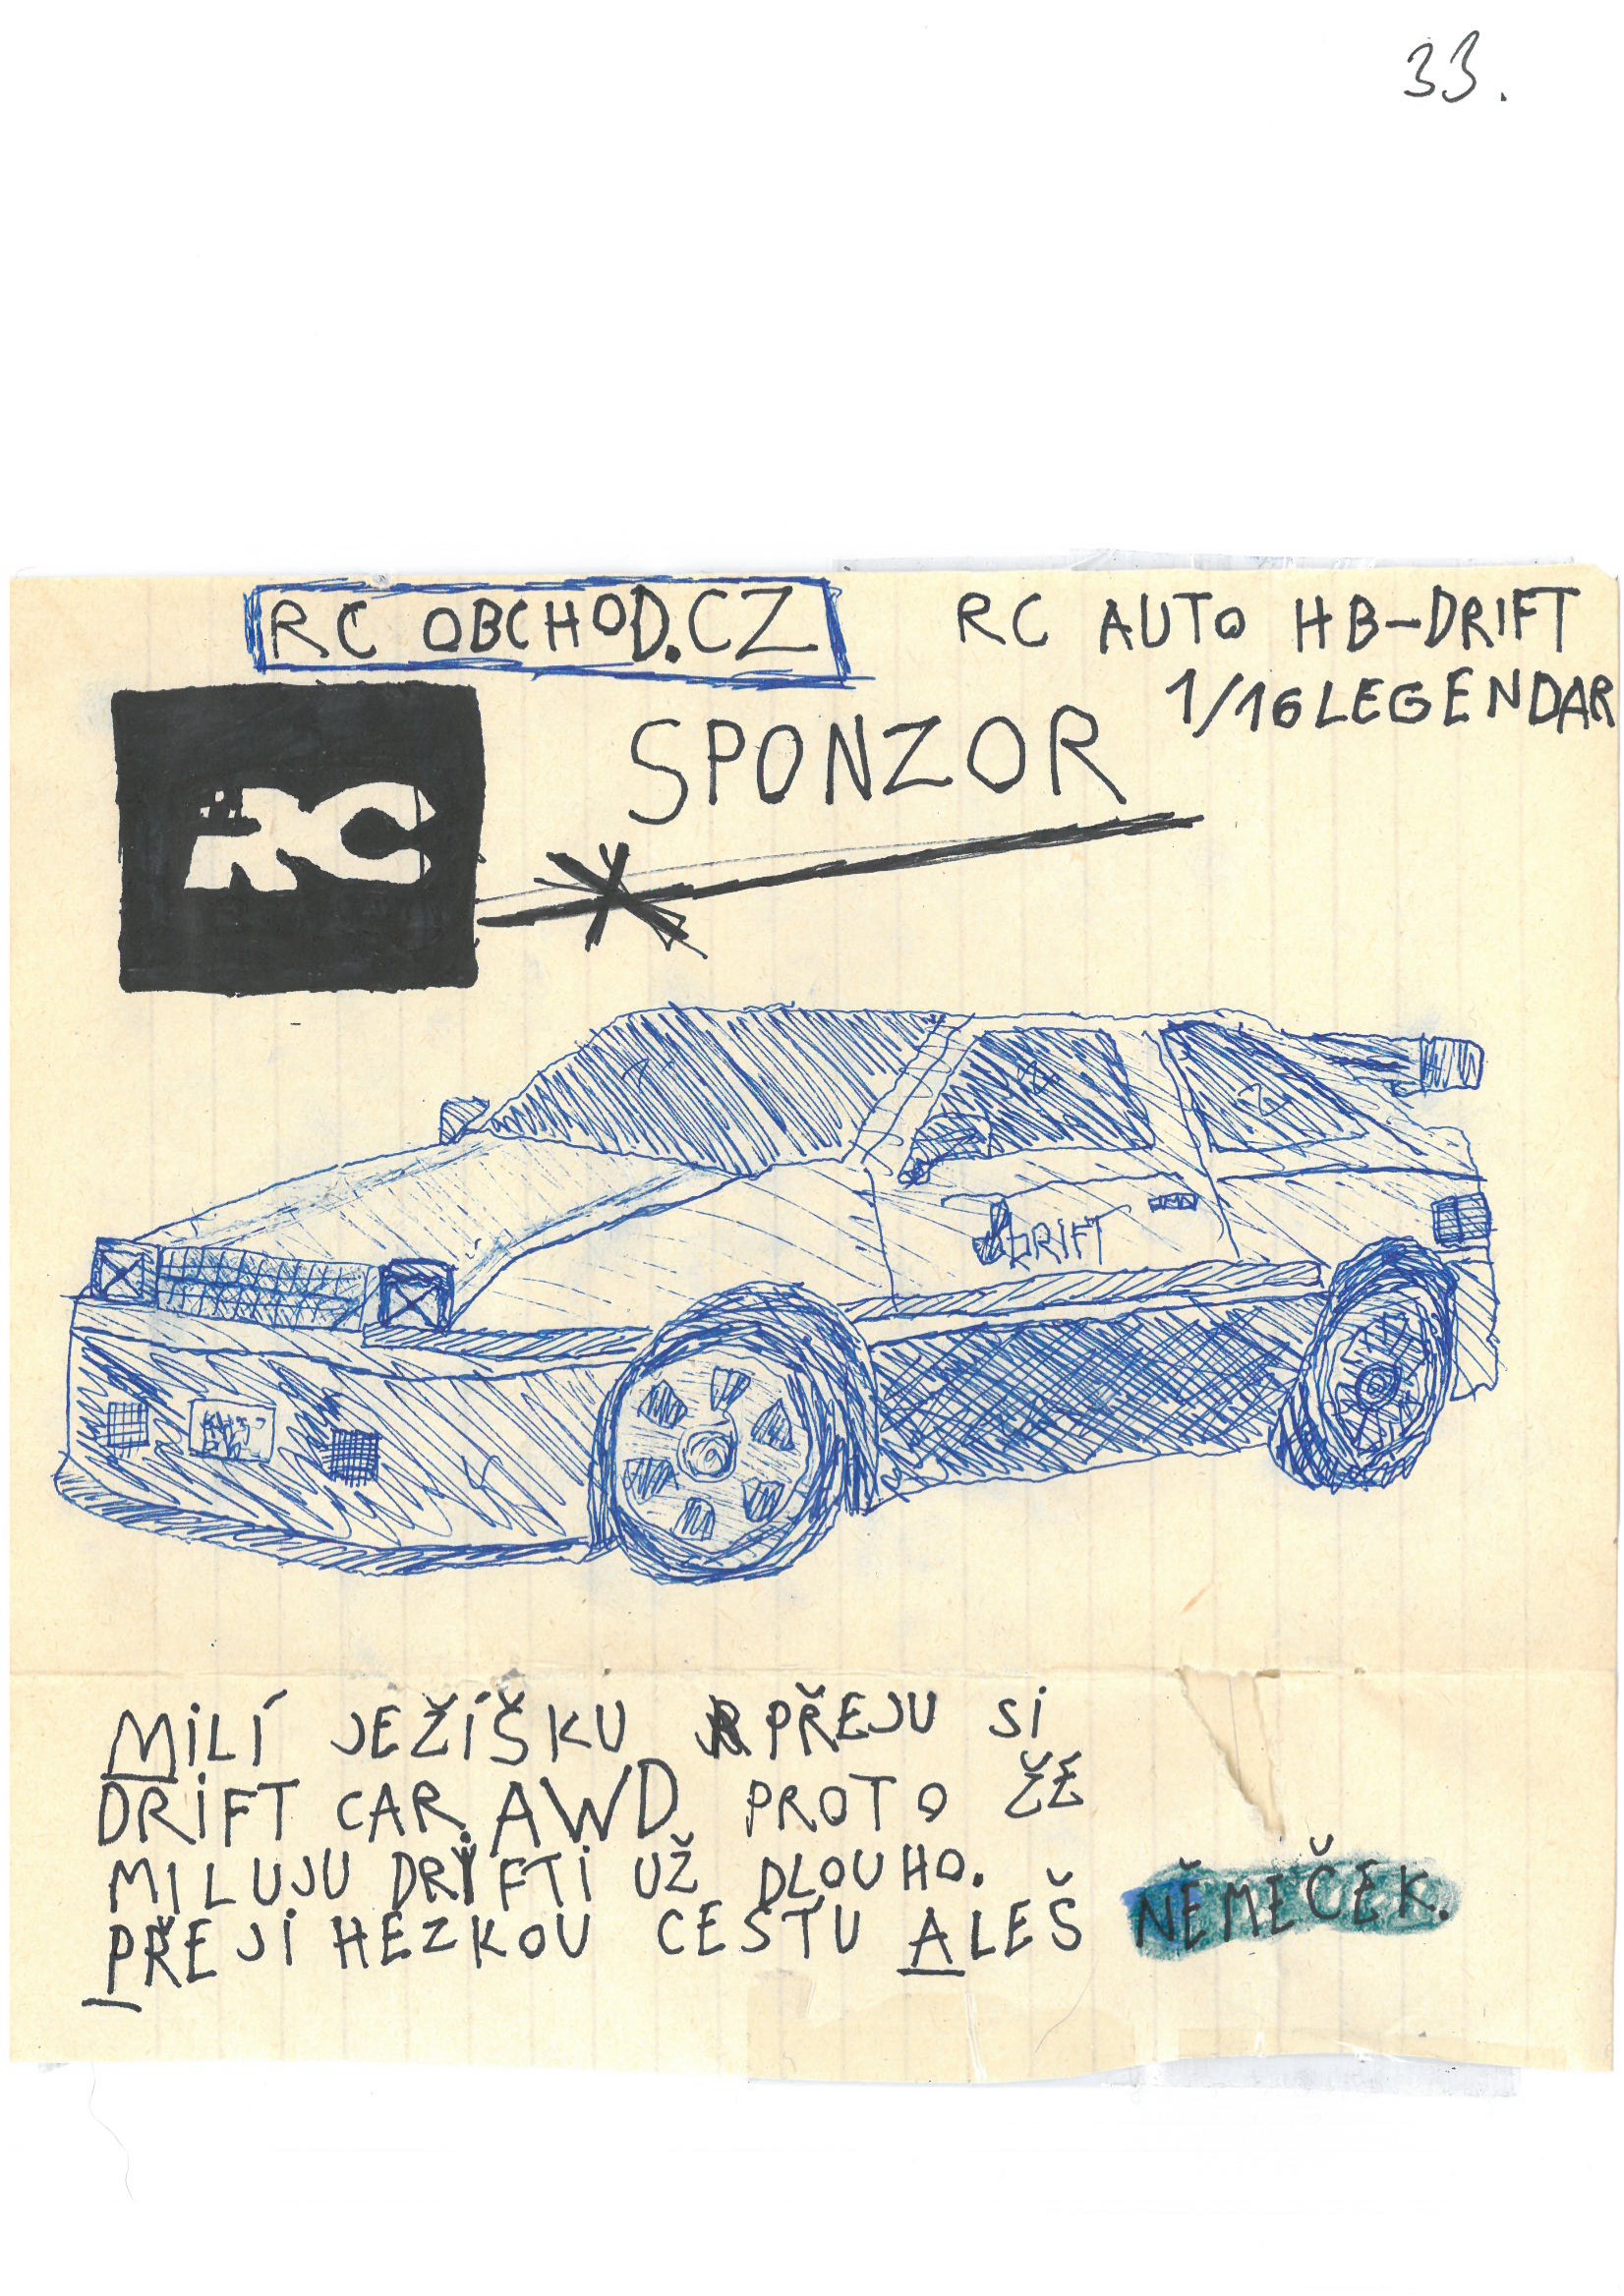 33.
RC OBCHOD.CZ
RC AUTO HB-DRIFT
1/16 LEGENDAR
SPONZOR
RC
DRIFT
MILÍ JEŽÍŠKU PŘEJU SI
DRIFT CAR AWD PROTO ŽE
MILUJU DRIFTI UŽ DLOUHO.
PŘEJI HEZKOU CESTU ALEŠ NĚMEČEK.